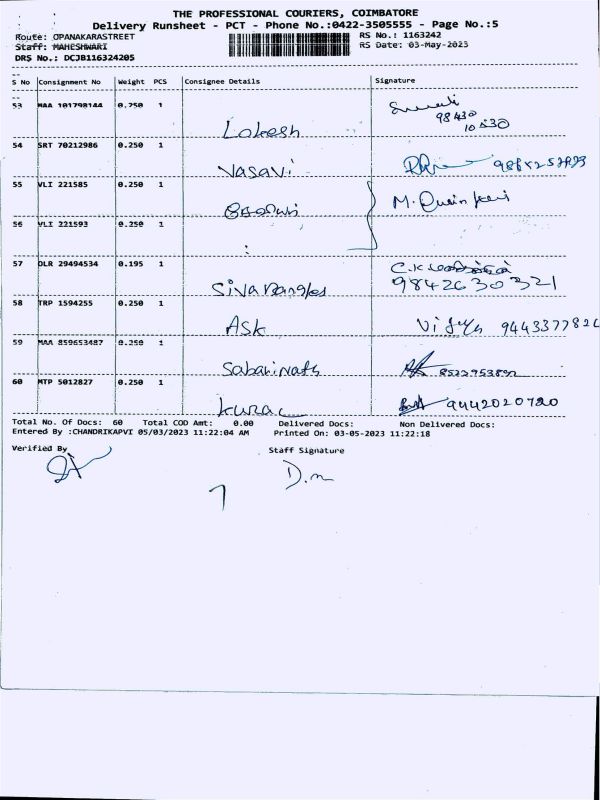 THE PROFESSIONAL COURIERS, COIMBATORE
Delivery Runsheet - PCT - Phone No.:0422-3505555 - Page No.:5
Route: OPANAKARASTREET RS No.: 1163242
Staff: MAHESHWARI RS Date: 03-May-2023
DRS No.: DCJB116324205
S No Consignment No Weight PCS Consignee Details Signature
53 MAA 101798144 0.250 1
Lokesh
54 SRT 70212986 0.250 1
Vasavi
55 VLI 221585 0.250 1
M.
56 VLI 221593 0.250 1
57 DLR 29494534 0.195 1 C.K
9842630321
58 TRP 1594255 0.250 1
ASK 9443377826
59 MAA 859653487 0.250 1
Sabarinath
60 MTP 5012827 0.250 1
9442020720
Total No. Of Docs: 60 Total COD Amt: 0.00 Delivered Docs: Non Delivered Docs:
Entered By :CHANDRIKAPVI 05/03/2023 11:22:04 AM Printed On: 03-05-2023 11:22:18
Verified By Staff Signature
D.m
7